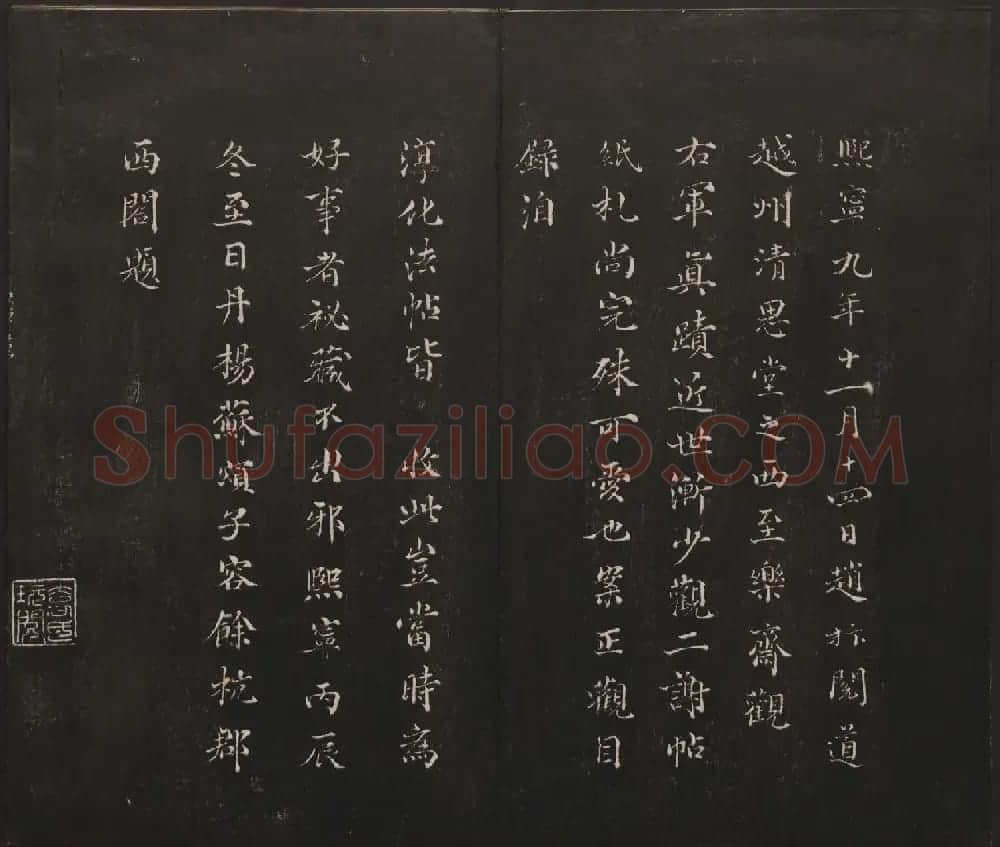 熙寧九年十一月十四日趙抃閱道
越州清思堂之西至樂齋觀
右軍真蹟近世漸少觀二謝帖
紙札尚完殊可愛也案正觀目
錄洎
淳化法帖皆不收此豈當時為
好事者祕藏不出邪熙寧丙辰
冬至日丹楊蘇頌子容餘杭郡
西閣題
Shufaziliao.COM